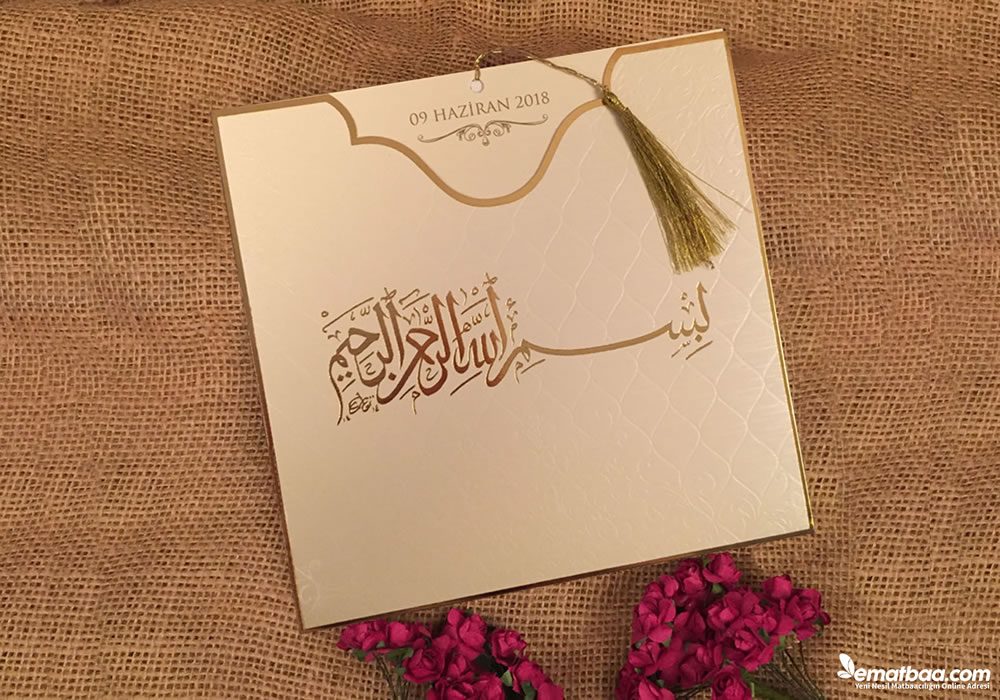 09 HAZİRAN 2018
بِسْمِ اللَّهِ الرَّحْمَنِ الرَّحِيمِ
ematbaa.com
Yeni Nesil Matbaacılığın Online Adresi